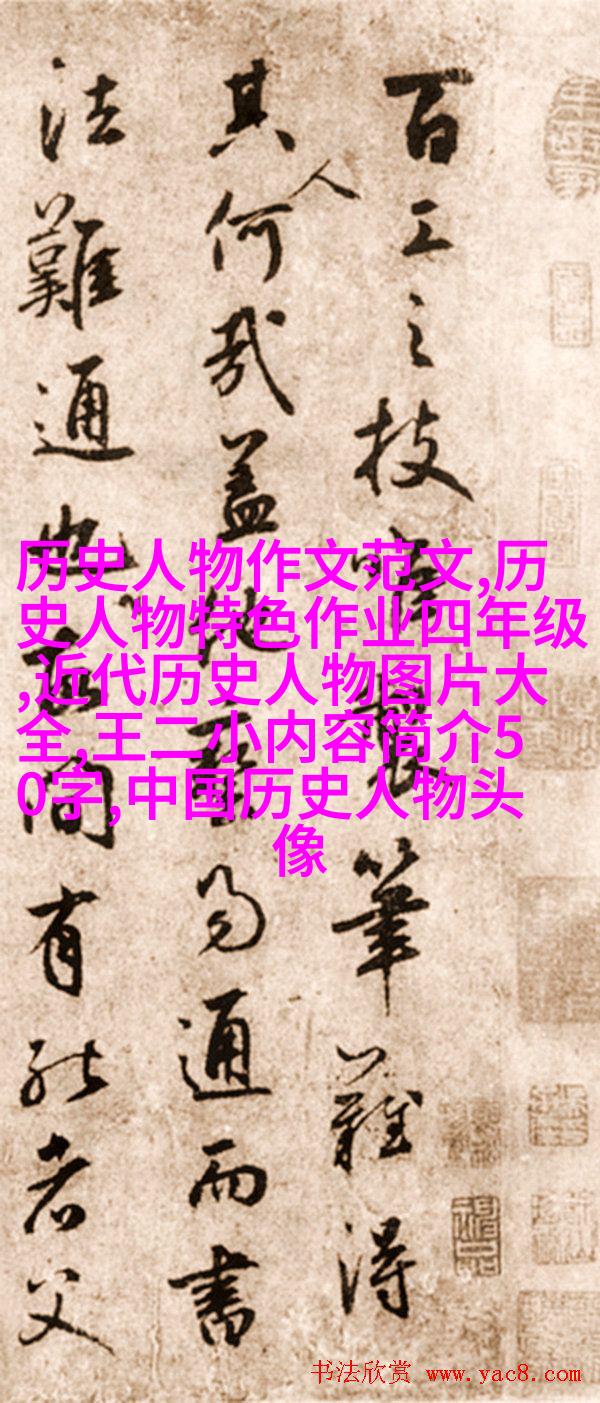 百工之技筆難得
其人何哉蓋他易通而書
法難通也間有能者父
历史人物作文范文,历
史人物特色作业四年级
,近代历史人物图片大
全,王二小内容简介5
0字,中国历史人物头
像
书法欣赏 www.yac8.com